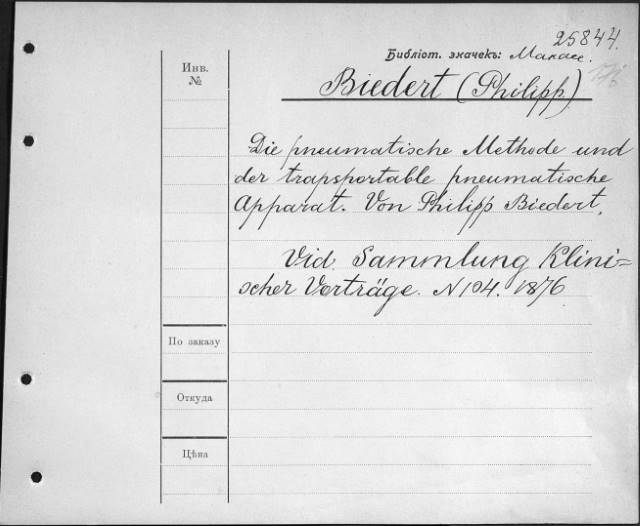 25844.
Библіот. значекъ: Манасс.
Инв.
№
Biedert (Philipp)
Die pneumatische Methode und
der trapsportable pneumatische
Apparat. Von Philipp Biedert,
Vid. Sammlung Klini-
scher Vorträge. N 104. 1876
По заказу
Откуда
Цѣна